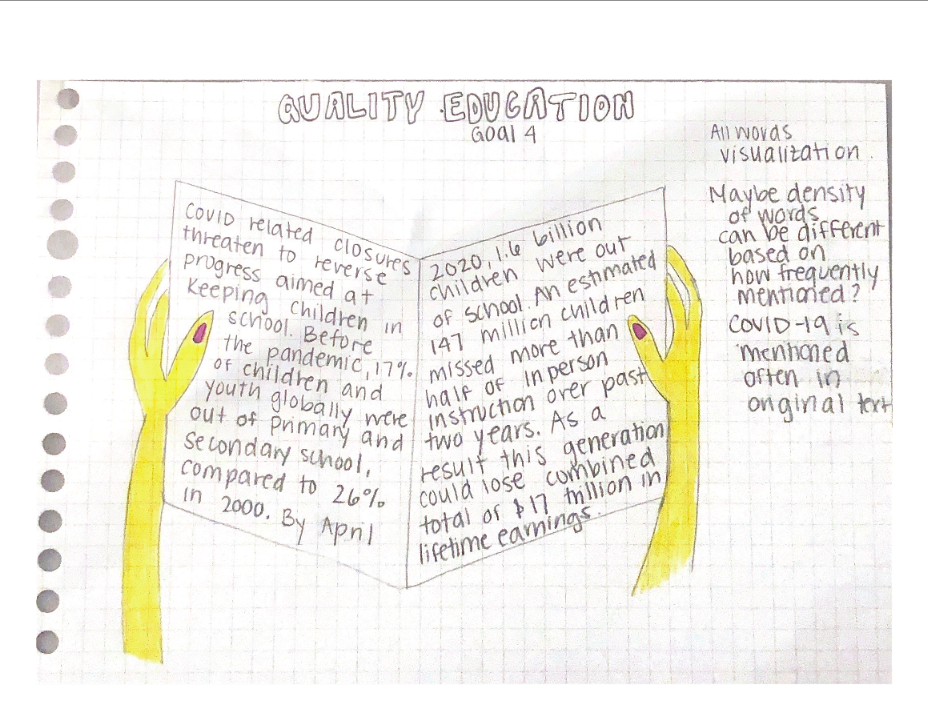 QUALITY EDUCATION
Goal 4
COVID related closures
threaten to reverse
progress aimed at
keeping children in
school. Before
the pandemic, 17%
of children and
youth globally were
out of primary and
secondary school,
compared to 26%
in 2000. By April
2020, 1.6 billion
children were out
of school. An estimated
147 million children
missed more than
half of in person
instruction over past
two years. As a
result this generation
could lose combined
total of $17 trillion in
lifetime earnings.
All words
visualization.
Maybe density
of words
can be different
based on
how frequently
mentioned?
COVID-19 is
mentioned
often in
original text